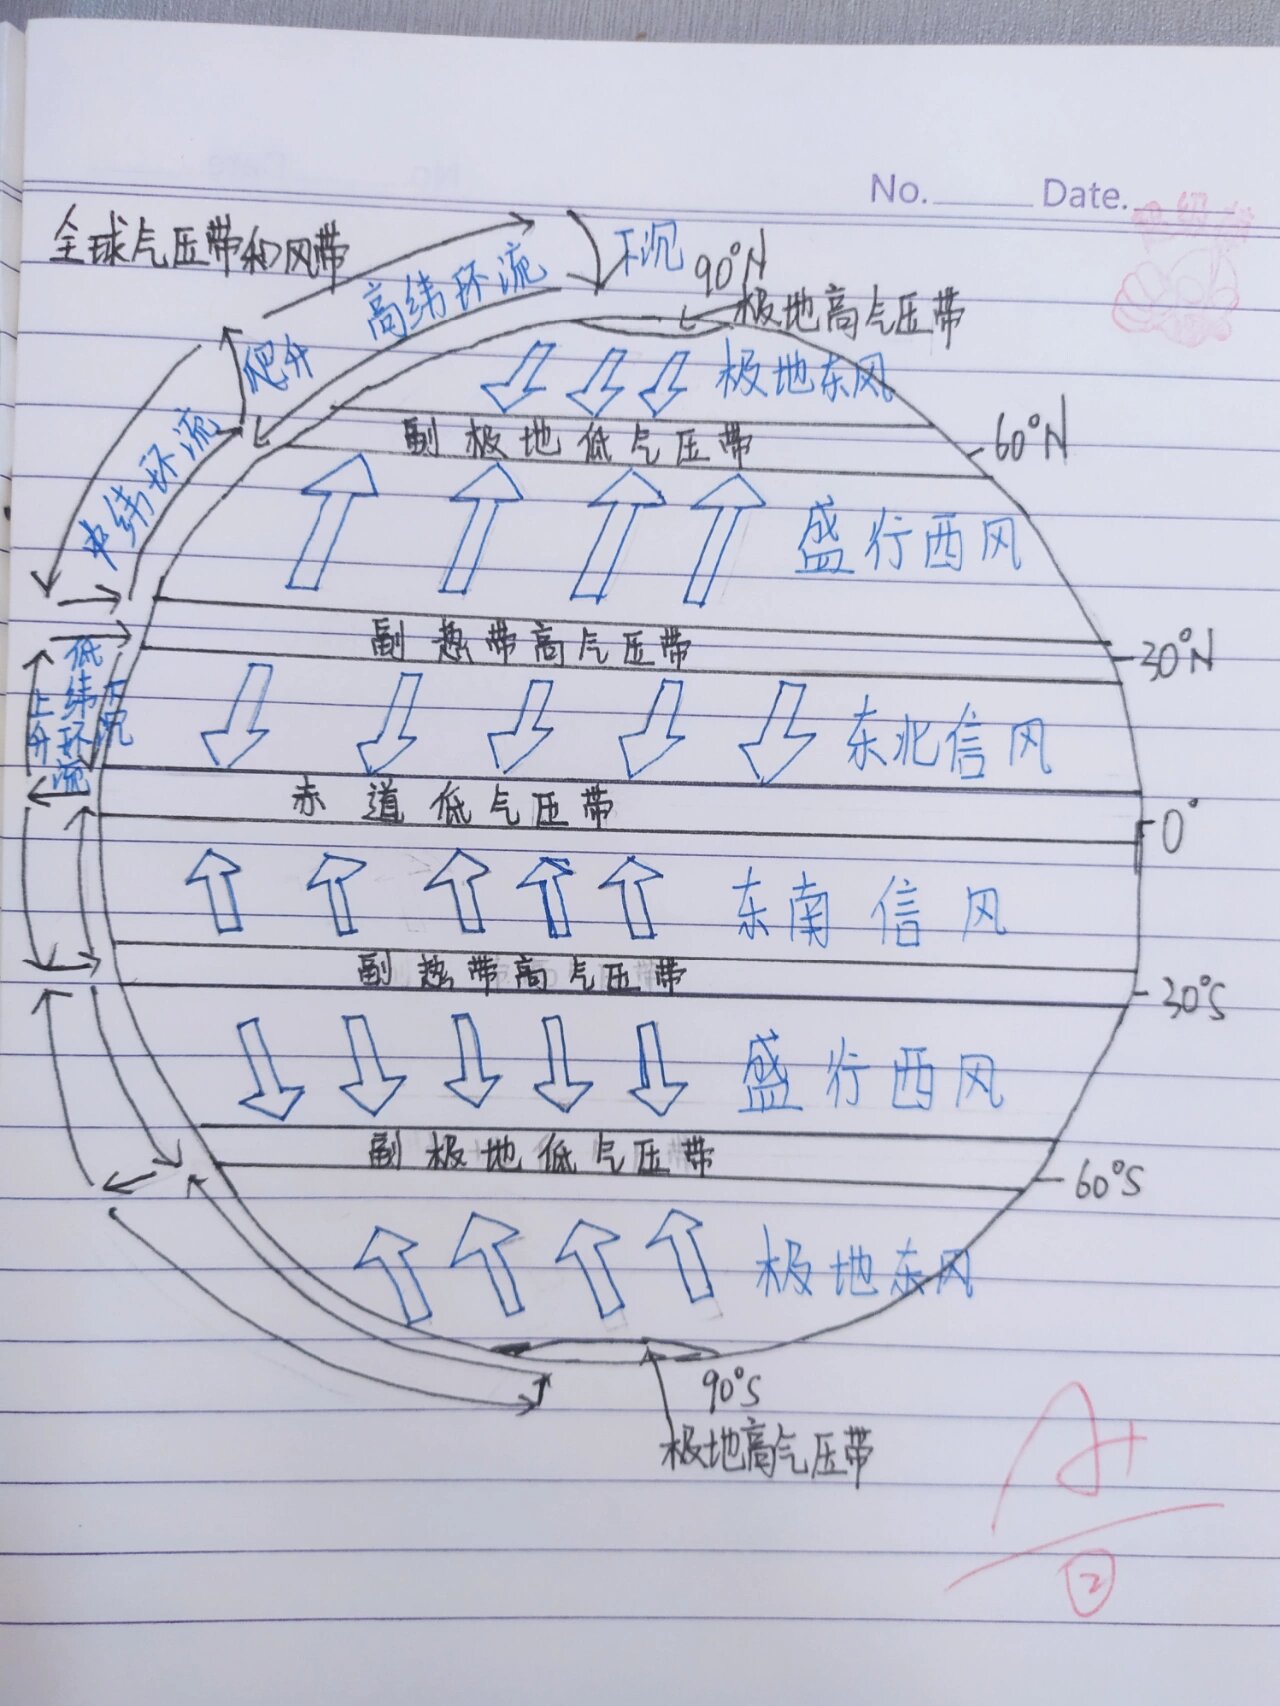 No. Date.
全球气压带和风带
下沉
90°N
高纬环流
极地高气压带
爬升
极地东风
副极地低气压带
60°N
中纬环流
盛行西风
副热带高气压带
30°N
低纬环流
上升
下沉
东北信风
赤道低气压带
0°
东南信风
副热带高气压带
30°S
盛行西风
副极地低气压带
60°S
极地东风
90°S
极地高气压带
A+
②